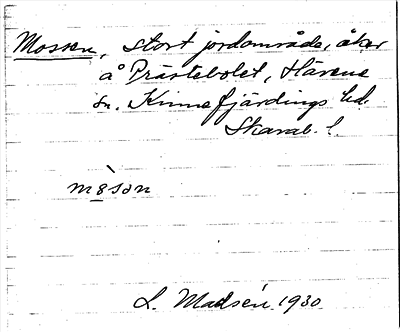 Mossen, stort jordområde, åker
å Prästebolet, Härene
sn. Kinnefjärdings hd.
Skarab. l.
måsɔn
L. Madsén 1930